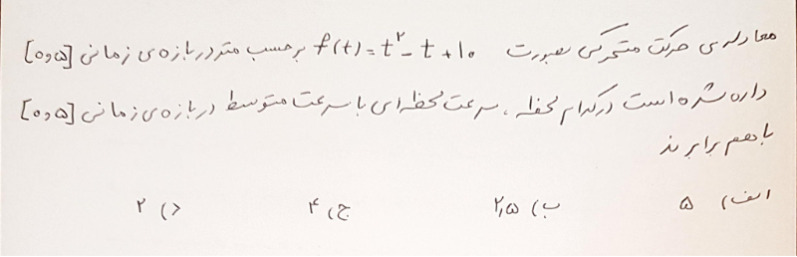 معادله‌ی حرکت متحرکی بصورت f(t)=t²-t+۱۰ برحسب متر در بازه‌ی زمانی [۰,۵]
داده شده است در کدام لحظه، سرعت لحظه‌ای با سرعت متوسط در بازه‌ی زمانی [۰,۵]
باهم برابرند
الف) ۵ ب) ۲,۵ ج) ۴ د) ۲